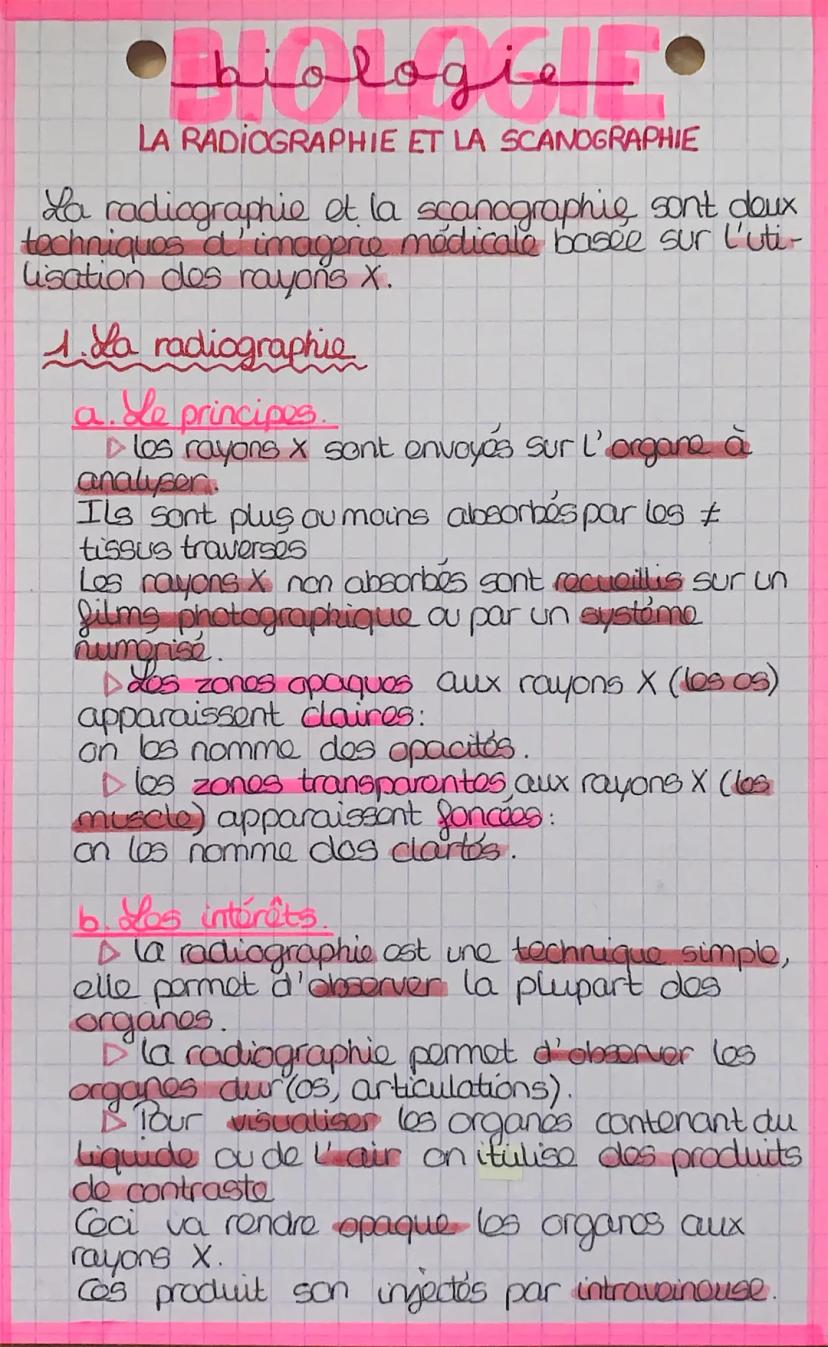 BIOLOGIE
biologie
LA RADIOGRAPHIE ET LA SCANOGRAPHIE
La radiographie et la scanographie sont deux
techniques d'imagerie médicale basée sur l'uti-
lisation des rayons X.
1. La radiographie
a. Le principes.
▷ les rayons X sont envoyés sur l'organe à
analyser.
Ils sont plus ou moins absorbés par les ≠
tissus traversés
Les rayons X non absorbés sont recueillis sur un
films photographique ou par un système
numérisé.
▷ Les zones opaques aux rayons X (les os)
apparaissent claires :
on les nomme des opacités.
▷ les zones transparentes aux rayons X (les
muscle) apparaissent foncées :
on les nomme des clartés.
b. Les intérêts.
▷ la radiographie est une technique simple,
elle permet d'observer la plupart des
organes.
▷ la radiographie permet d'observer les
organes dur (os, articulations).
▷ Pour visualiser les organes contenant du
liquide ou de l'air on itulise des produits
de contraste
Ceci va rendre opaque les organes aux
rayons X.
Ces produit son injectés par intraveineuse.